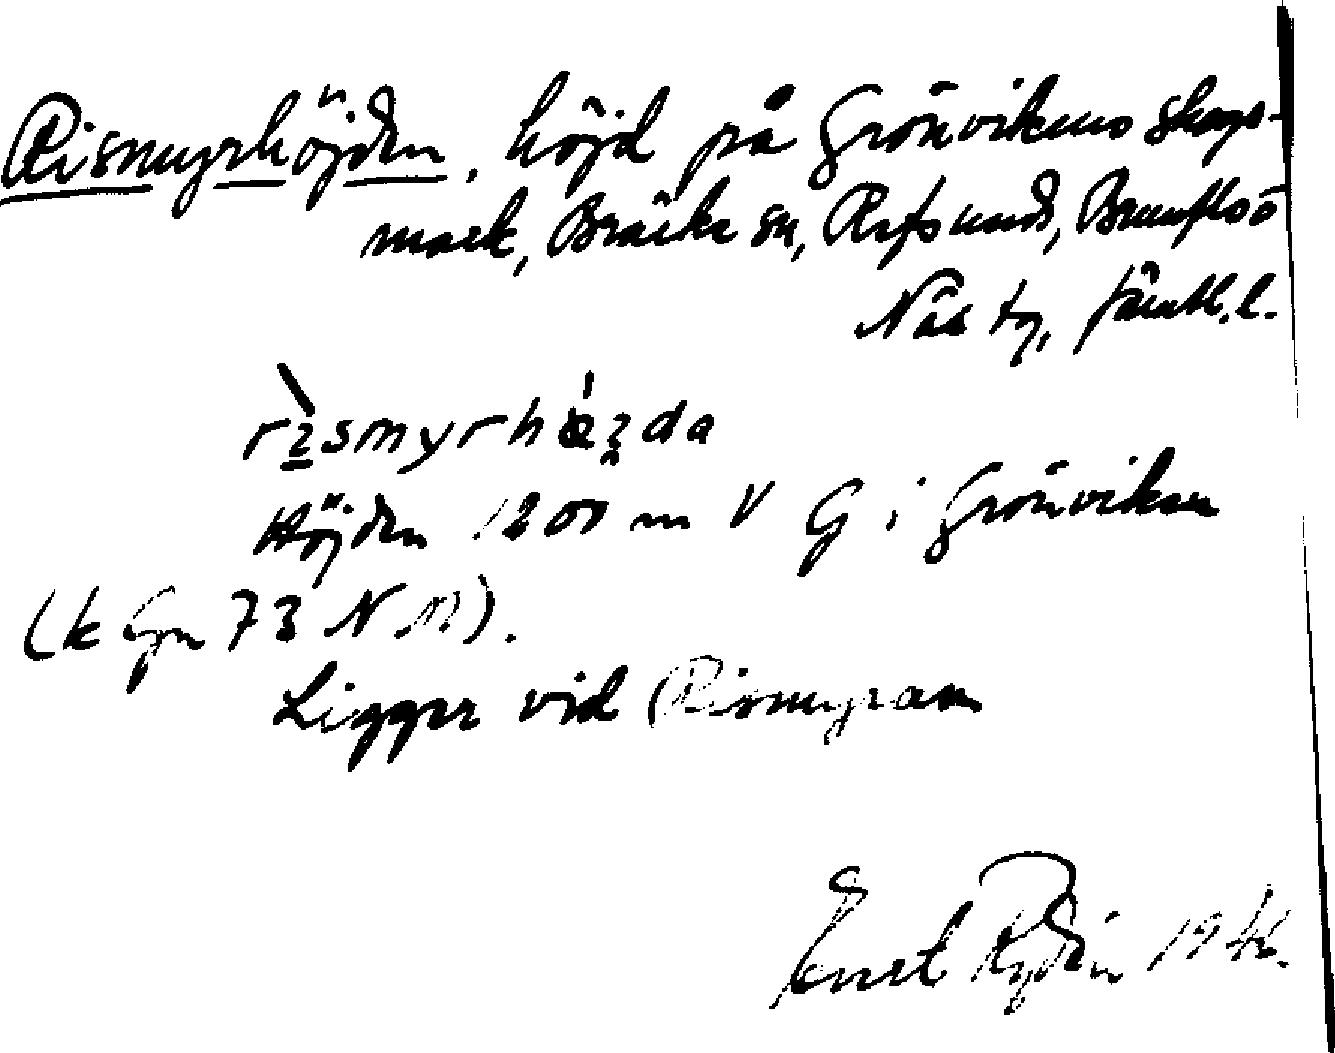 Rismyrhöjden, höjd på Grönvikens skogs-
mark, Bräcke sn, Refsunds, Brunflo o
Näs tg, Jämtl. l.
Höjden 1200 m V G i Grönviken
(k Gn 73 N M).
Ligger vid Rismyran
Ernst Rydén 1946.